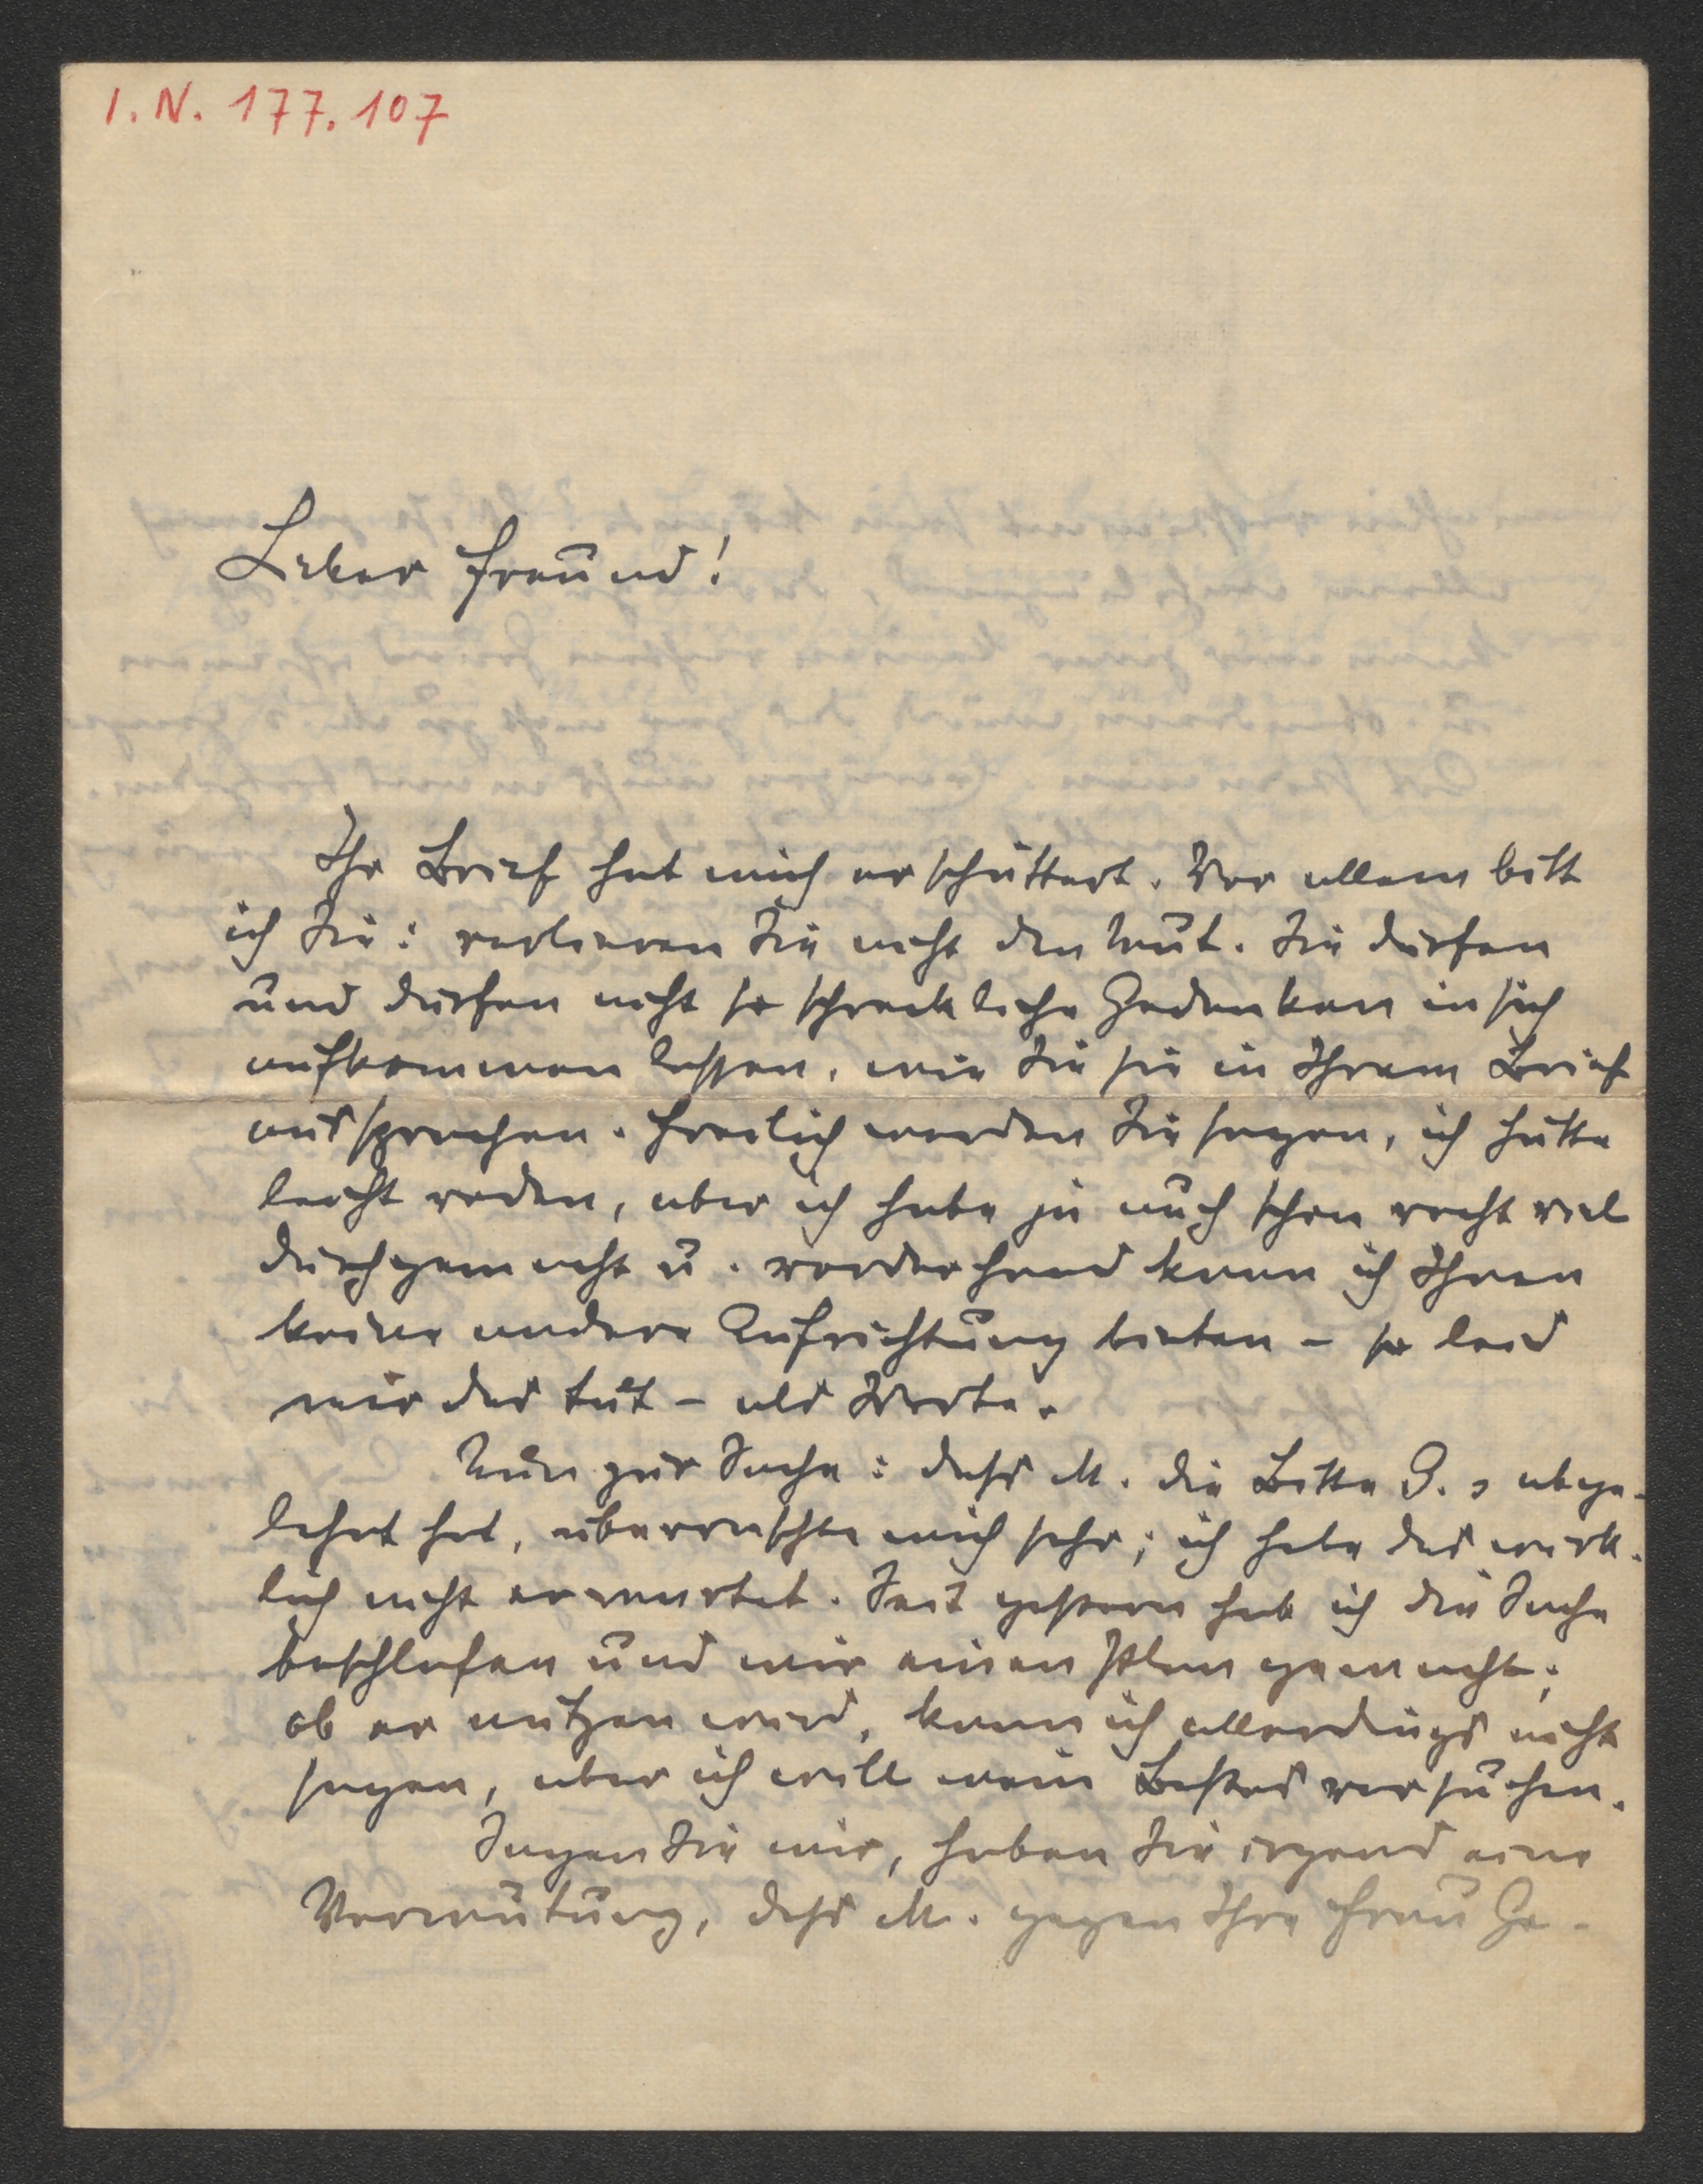 I.N. 177.107
Lieber Freund!
Ihr Brief hat mich erschüttert. Vor allem bitt
ich Sie: verlieren Sie nicht den Mut. Sie dürfen
und dürfen nicht so schreckliche Gedanken in sich
aufkommen lassen, wie Sie sie in Ihrem Brief
aussprechen. Freilich werden Sie sagen, ich hätte
leicht reden, aber ich habe ja auch schon recht viel
durchgemacht u. vorderhand kann ich Ihnen
keine andere Aufrichtung bieten – so leid
mir das tut – als Worte.
Nun zur Sache: dass M. die Bitte G.s abge-
lehnt hat, überraschte mich sehr; ich habe das wirk-
lich nicht erwartet. Seit gestern hab ich die Sache
beschlafen und mir einen Plan gemacht;
ob er nützen wird, kann ich allerdings nicht
sagen, aber ich will mein Bestes versuchen.
Sagen Sie mir, haben Sie irgend eine
Vermutung, dass M. gegen Ihre Frau Ge-